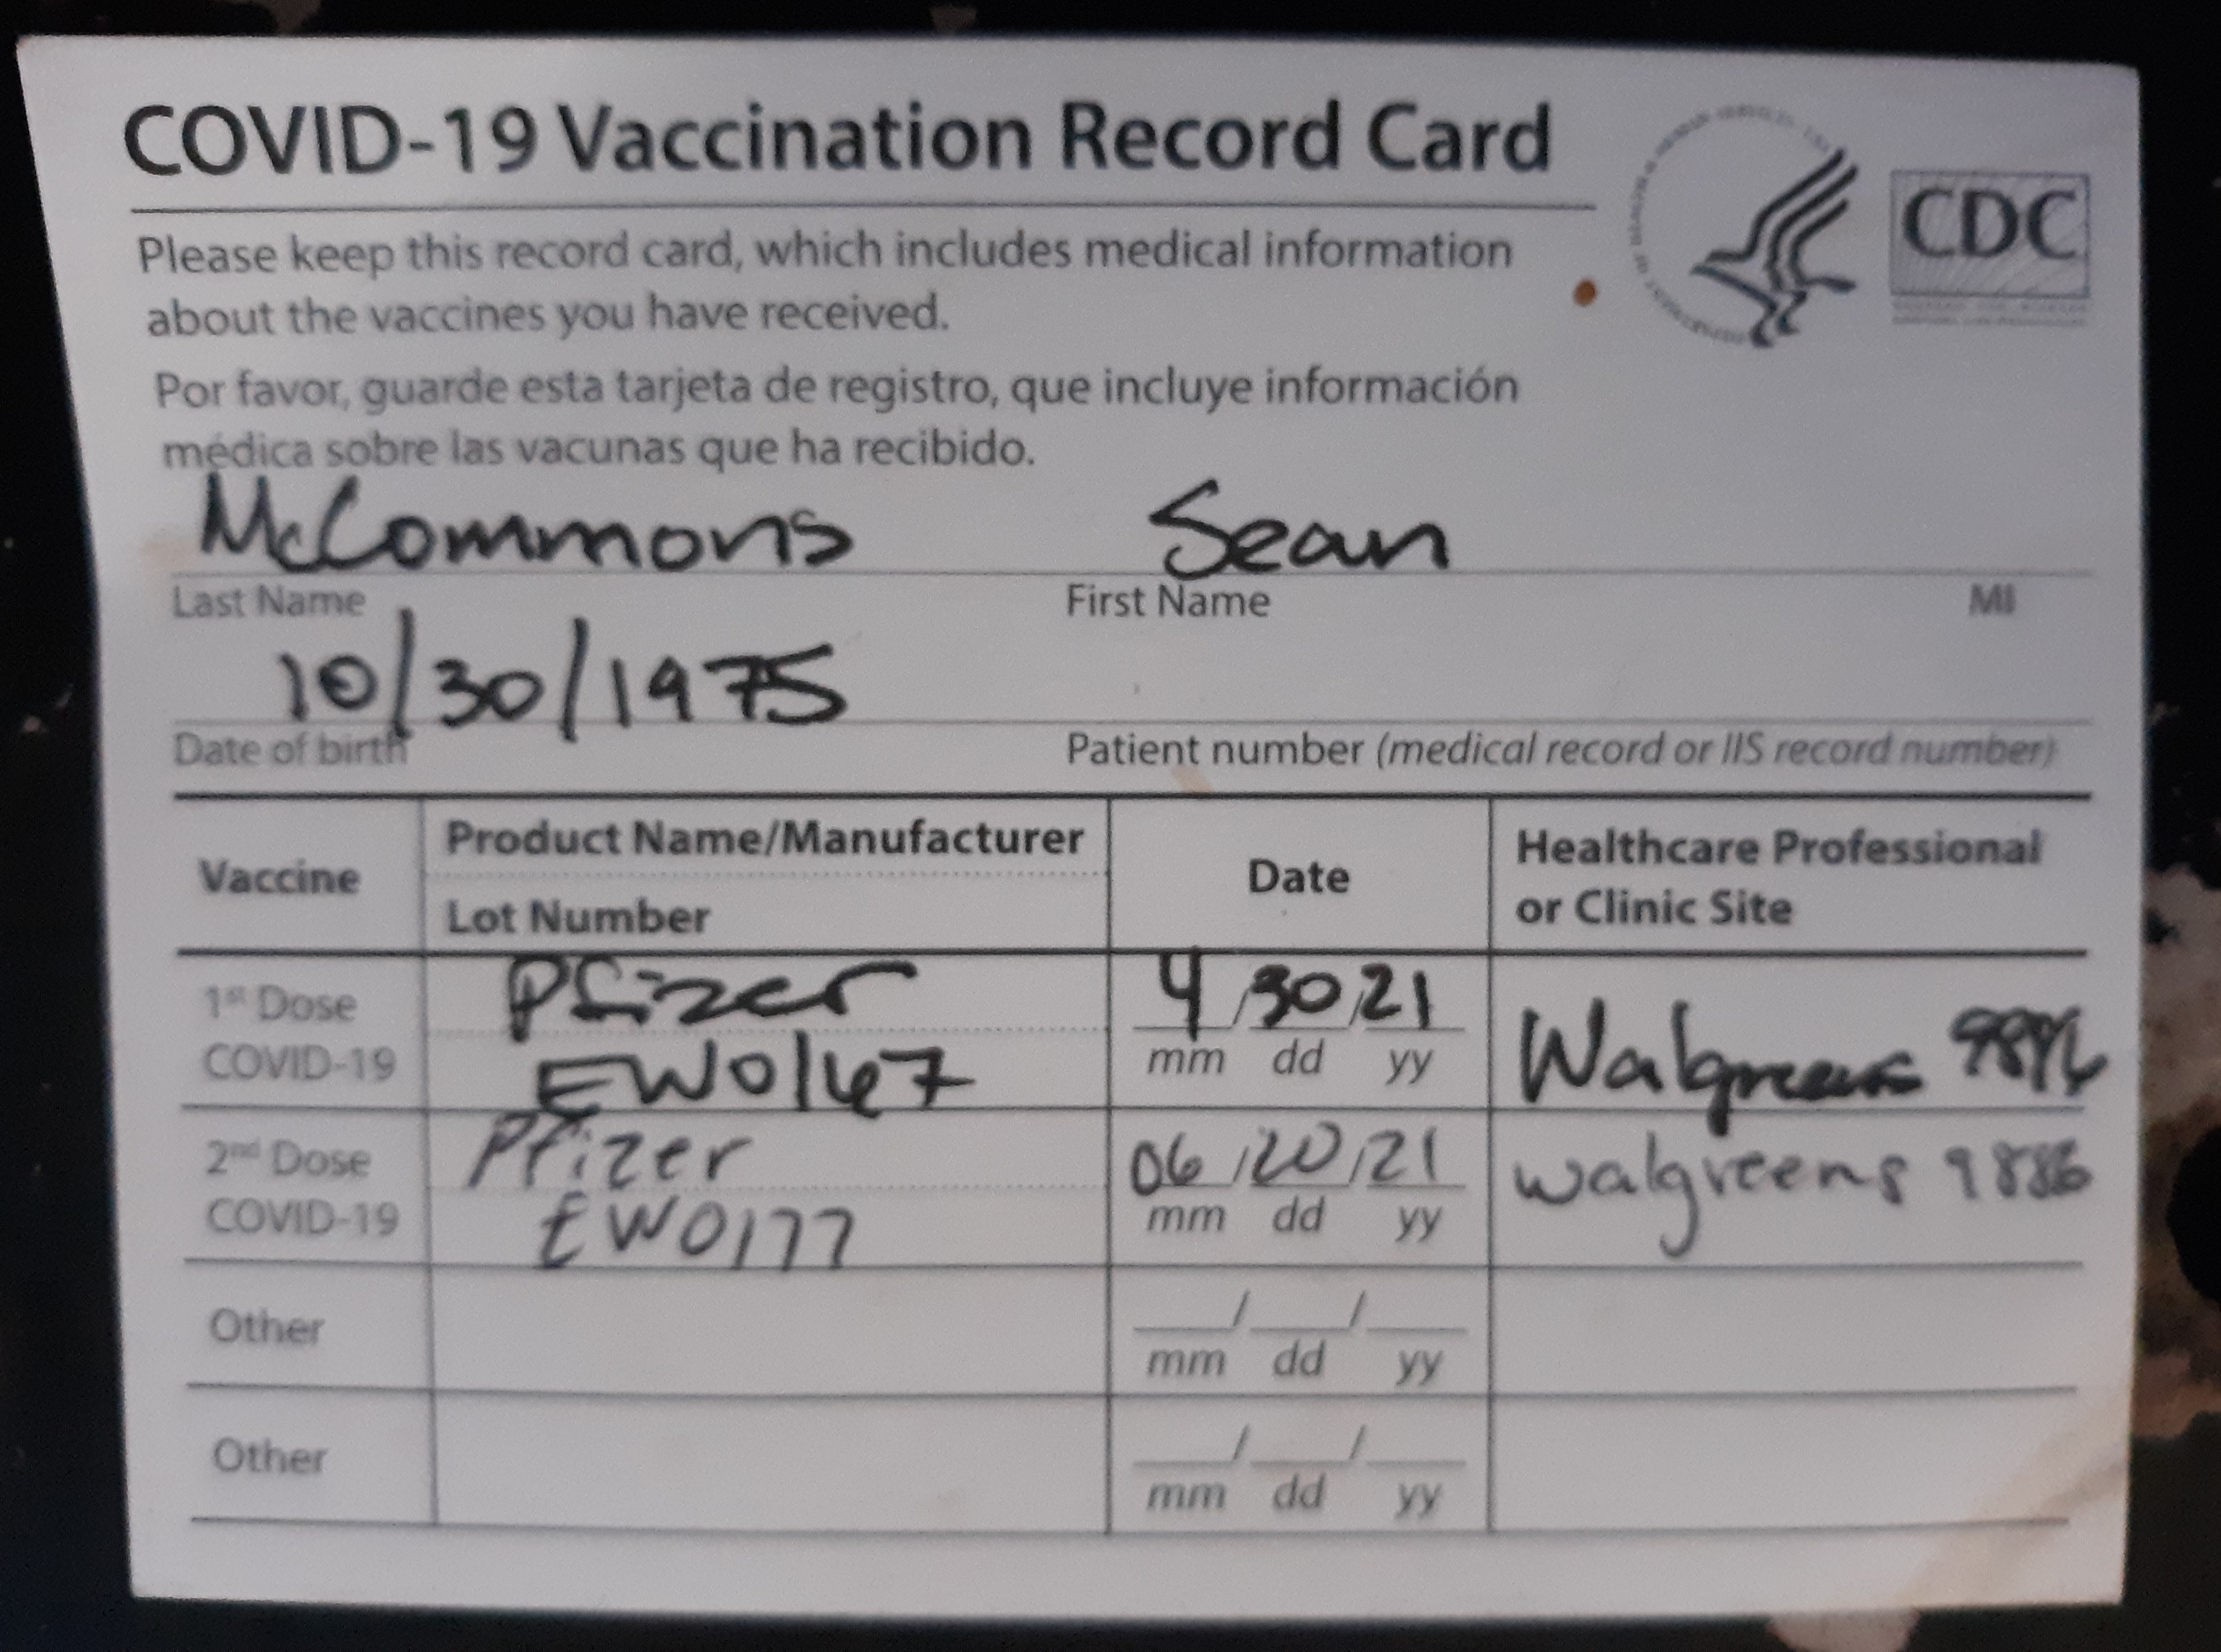 COVID-19 Vaccination Record Card
CDC
Please keep this record card, which includes medical information
about the vaccines you have received.
Por favor, guarde esta tarjeta de registro, que incluye información
médica sobre las vacunas que ha recibido.
McCommons Sean
Last Name First Name MI
10/30/1975
Date of birth Patient number (medical record or IIS record number)
Vaccine Product Name/Manufacturer Date Healthcare Professional
Lot Number or Clinic Site
1st Dose Pfizer 4/30/21 Walgreens
COVID-19 EW0167 mm dd yy
2nd Dose Pfizer 06/20/21 walgreens 9886
COVID-19 EW0177 mm dd yy
Other / /
mm dd yy
Other / /
mm dd yy